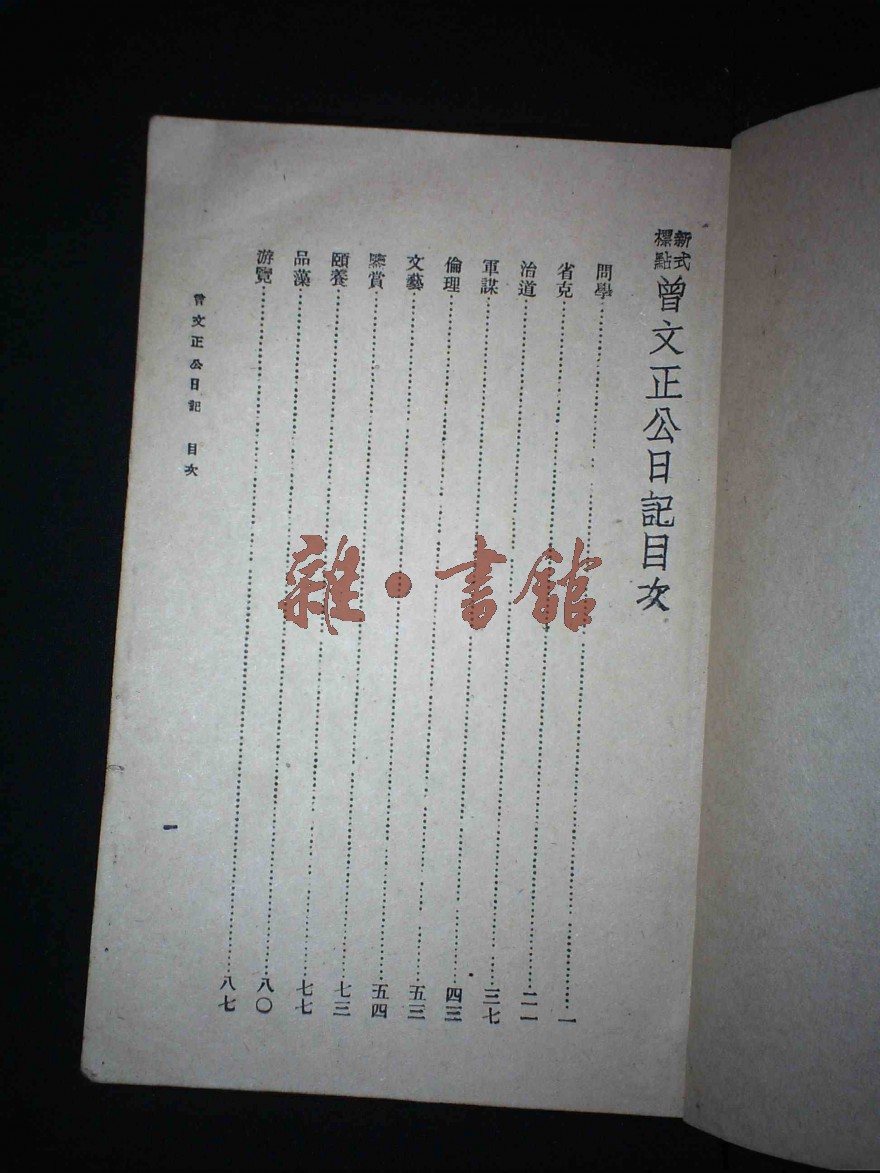 新式標點
曾文正公日記目次
問學……一
省克……二一
治道……三七
軍謀……四三
倫理……五三
文藝……五四
鑒賞……七三
頤養……七七
品藻……八〇
游覽……八七
曾文正公日記 目次
一
雜·書館